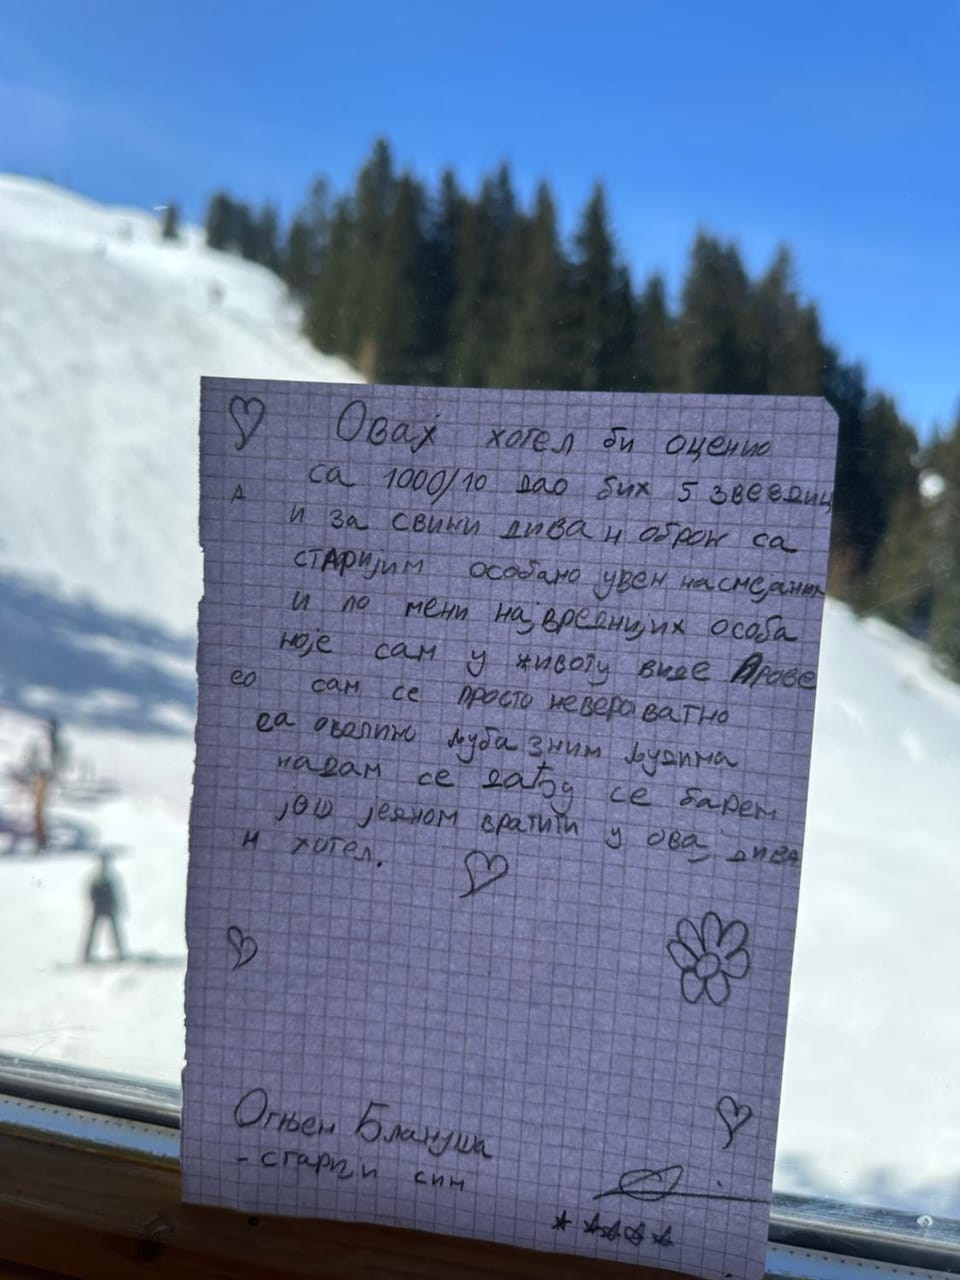 Овај хотел би оценио
са 1000/10 дао бих 5 звездиц
а и за свини дива н оброк са
старијим особано увек насмејаним
и по мени највреднијих особа
које сам у животу виде Прове
ео сам се просто невероватно
са оволико љубазним људима
надам се даћу се барем
још једном вратити у овај дива
н хотел.
Огњен Блануша
- старији син